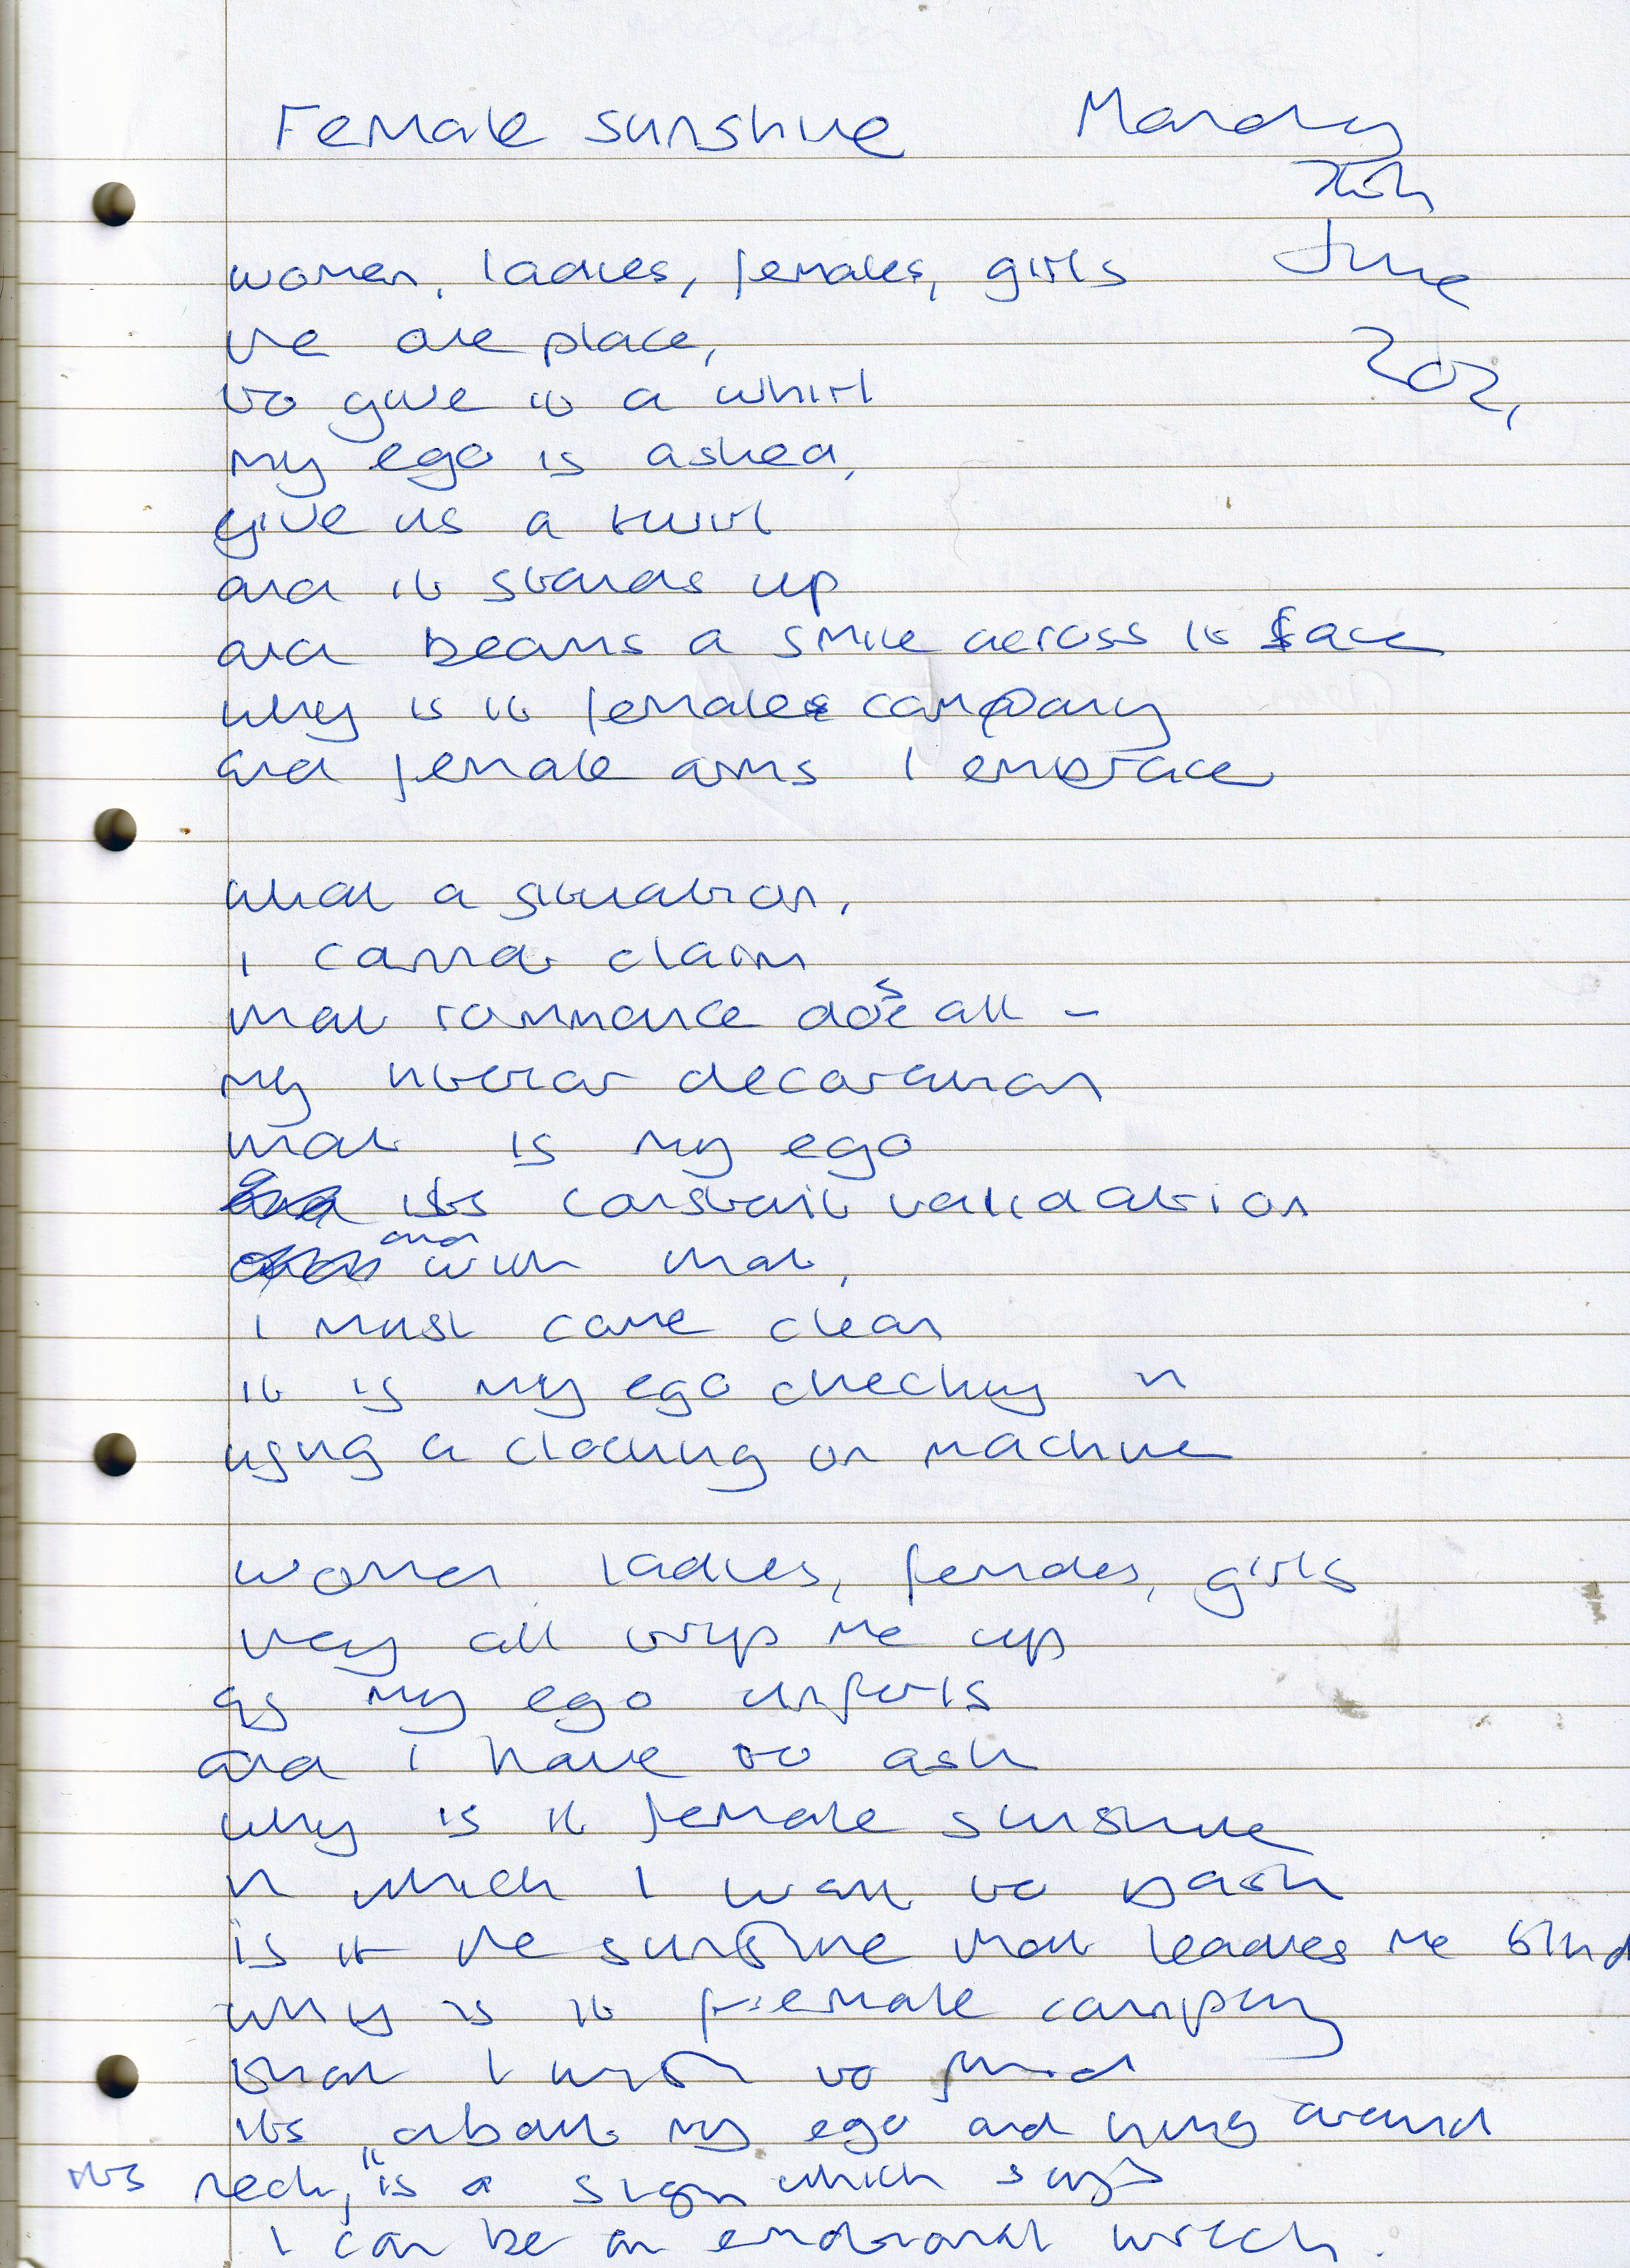 Female sunshine Monday
June
2021
women, ladies, females, girls
the one place,
to give it a whirl
my ego is asked,
give us a twirl
and it stands up
and beams a smile across it face
why is it female company
and female arms I embrace
what a situation,
I cannot claim
that rommance does all -
my interior decoration
that is my ego
its constant validation
and with that,
I must come clean
it is my ego checking in
using a clocking on machine
women ladies, females, girls
they all trip me up
as my ego unfurls
and I have to ask
why is it female sunshine
in which I want to bask
is it the sunshine that leaves me blind
why is it female company
that I wish to find
its about my ego and hung around
its neck, is a sign which says
I can be an emotional wreck.